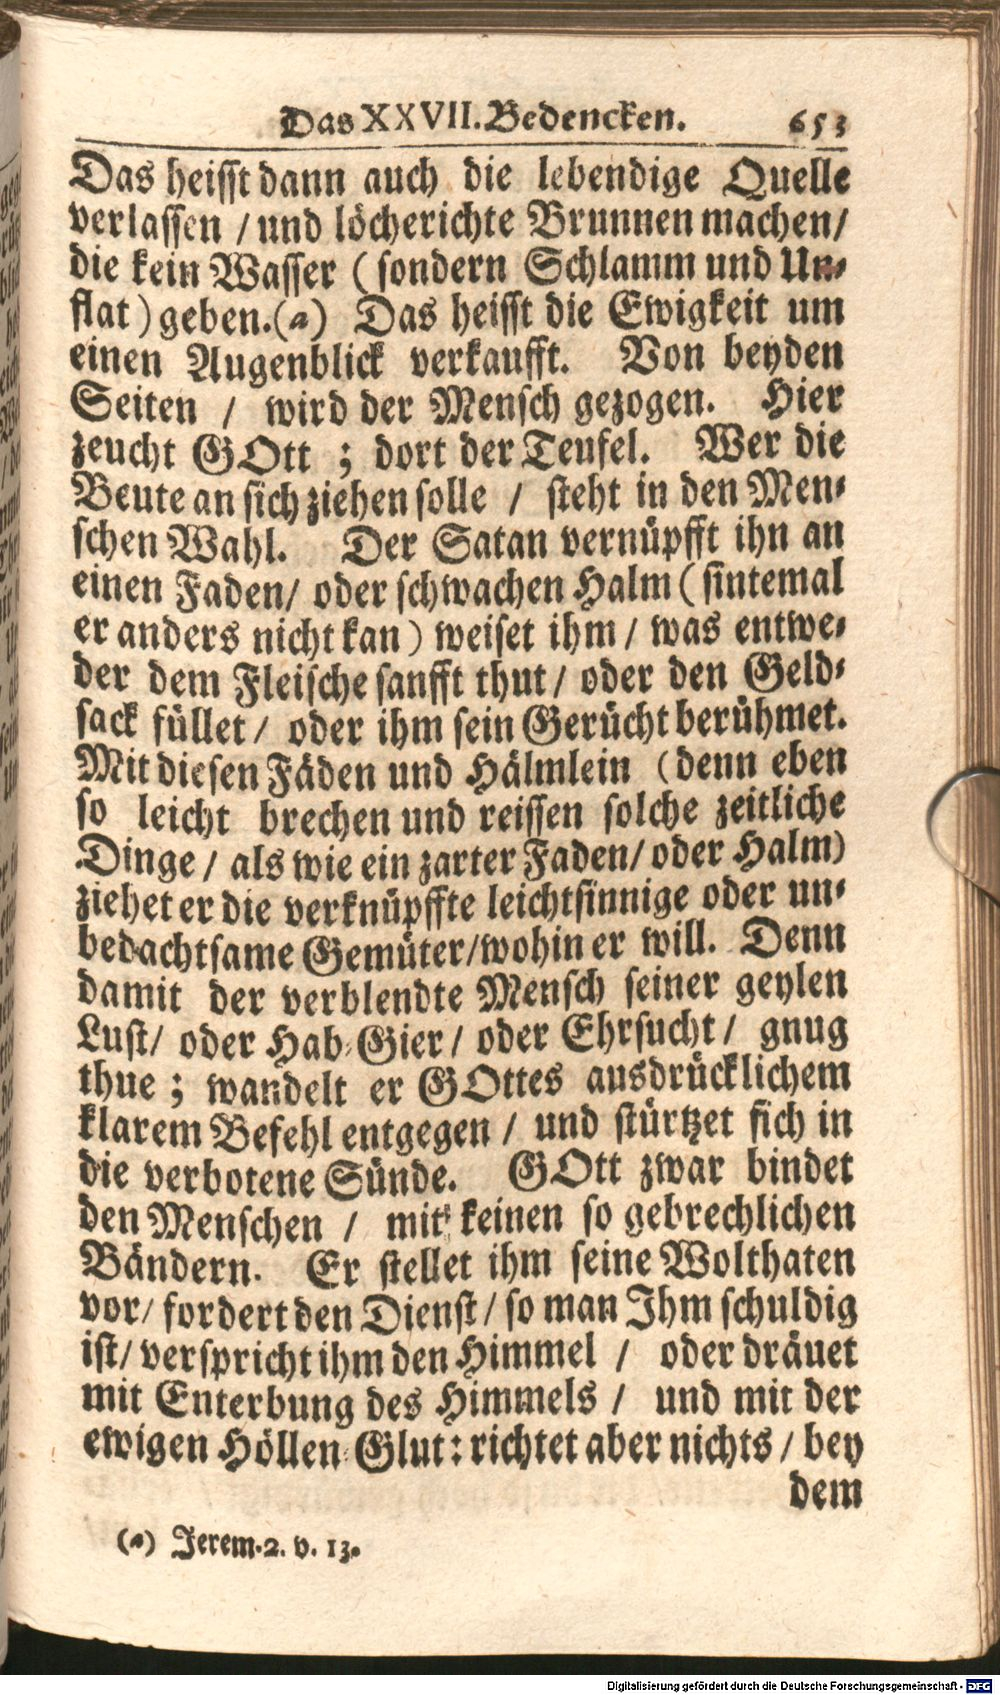 Das XXVII. Bedencken. 653
Das heisst dann auch die lebendige Quelle
verlassen / und löcherichte Brunnen machen/
die kein Wasser ( sondern Schlamm und Un-
flat ) geben.(a) Das heisst die Ewigkeit um
einen Augenblick verkaufft. Von beyden
Seiten / wird der Mensch gezogen. Hier
zeucht GOtt ; dort der Teufel. Wer die
Beute an sich ziehen solle / steht in den Men-
schen Wahl. Der Satan vernüpfft ihn an
einen Faden/ oder schwachen Halm ( sintemal
er anders nicht kan ) weiset ihm / was entwe-
der dem Fleische sanfft thut / oder den Geld-
sack füllet / oder ihm sein Gerücht berühmet.
Mit diesen Fäden und Hälmlein (denn eben
so leicht brechen und reissen solche zeitliche
Dinge / als wie ein zarter Faden/ oder Halm)
ziehet er die verknüpffte leichtsinnige oder un-
bedachtsame Gemüter/wohin er will. Denn
damit der verblendte Mensch seiner geylen
Lust/ oder Hab-Gier / oder Ehrsucht / gnug
thue ; wandelt er GOttes ausdrücklichem
klarem Befehl entgegen / und stürtzet sich in
die verbotene Sünde. GOtt zwar bindet
den Menschen / mit keinen so gebrechlichen
Bändern. Er stellet ihm seine Wolthaten
vor/ fordert den Dienst / so man Ihm schuldig
ist/ verspricht ihm den Himmel / oder dräuet
mit Enterbung des Himmels / und mit der
ewigen Höllen-Glut: richtet aber nichts / bey
dem
(a) Jerem. 2. v. 13.
Digitalisierung gefördert durch die Deutsche Forschungsgemeinschaft - DFG